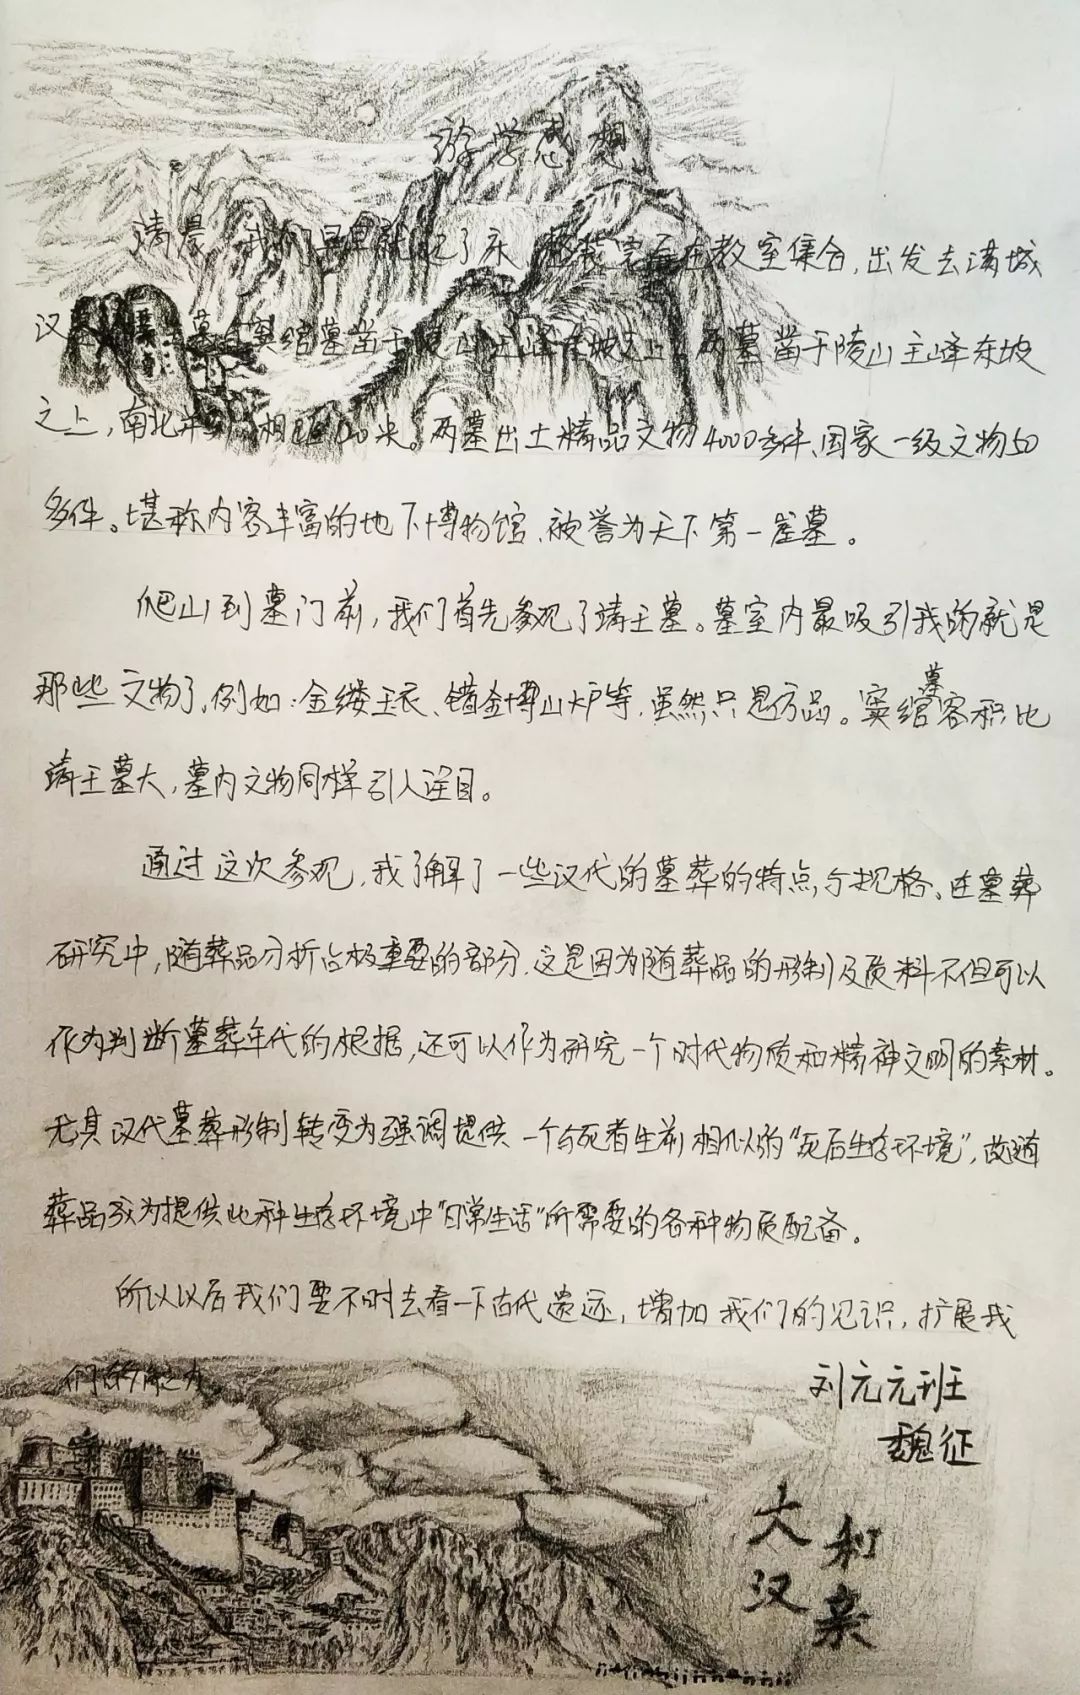 游学感想
清晨 我们早早就起了床 整装完后在教室集合,出发去满城
汉 墓与窦绾墓凿于陵山主峰东坡之上,两墓凿于陵山主峰东坡
之上,南北并列 相距120米。两墓出土精品文物4000多件、国家一级文物50
多件。堪称内容丰富的地下博物馆、被誉为天下第一崖墓。
爬山到墓门前,我们首先参观了靖王墓。墓室内最吸引我的就是
那些文物了,例如:金缕玉衣、错金博山炉等,虽然只是仿品。窦绾墓容积比
靖王墓大,墓内文物同样引人注目。
通过这次参观,我了解了一些汉代的墓葬的特点与规格、在墓葬
研究中,随葬品分析占极重要的部分、这是因为随葬品的形制及质料不但可以
作为判断墓葬年代的根据,还可以作为研究一个时代物质和精神文明的素材。
尤其汉代墓葬形制转变为强调提供一个与死者生前相似的“死后生活环境”,故随
葬品成为提供此种生活环境中“日常生活”所需要的各种物质配备。
所以以后我们要不时去看一下古代遗迹,增加我们的见识,扩展我
们的
刘元元班
魏征
大汉
和亲